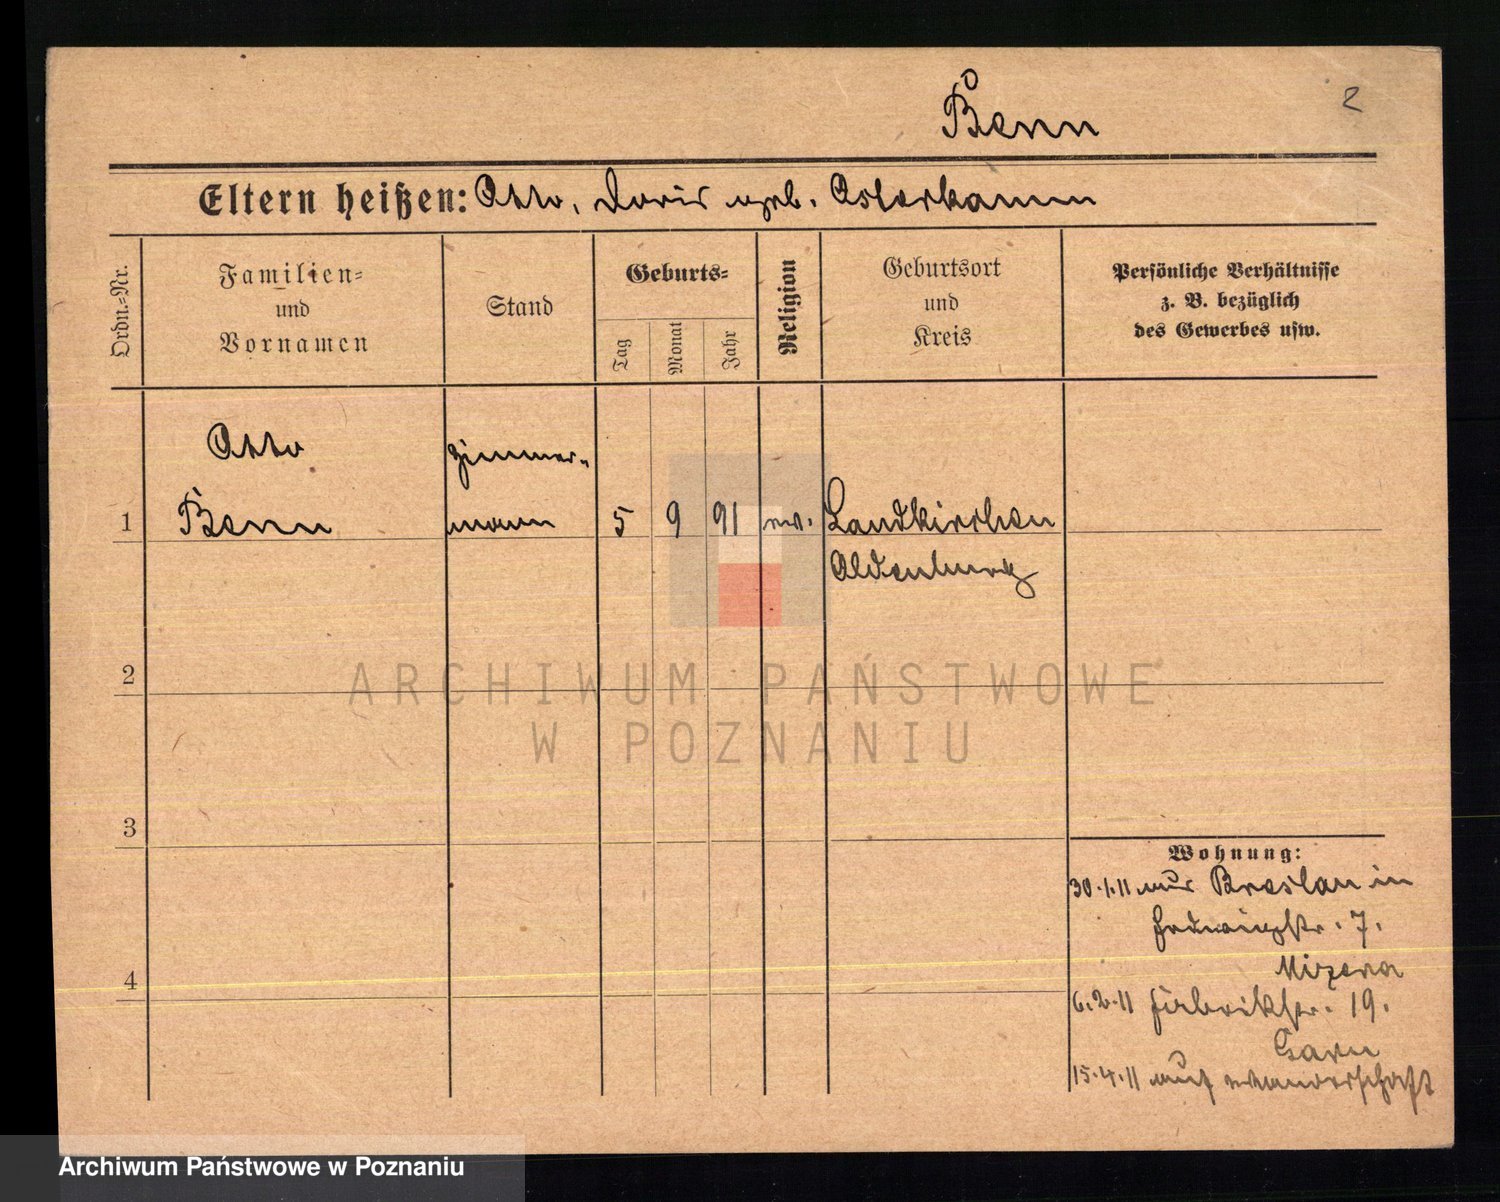 Benn
2
Eltern heißen: Otto, Doris geb. Osterkamm
Ordn.-Nr.
Familien-
und
Vornamen
Stand
Geburts-
Tag
Monat
Jahr
Religion
Geburtsort
und
Kreis
Persönliche Verhältnisse
z. B. bezüglich
des Gewerbes usw.
Otto
Zimmer-
1 Benn mann 5 9 91 ev. Landkirchen
Oldenburg
2
ARCHIWUM PAŃSTWOWE
W POZNANIU
3
Wohnung:
30.1.11 aus Breslau in
str. 7.
4
6.2.11 Fabrikstr. 19.
15.4.11 auf Wanderschaft
Archiwum Państwowe w Poznaniu